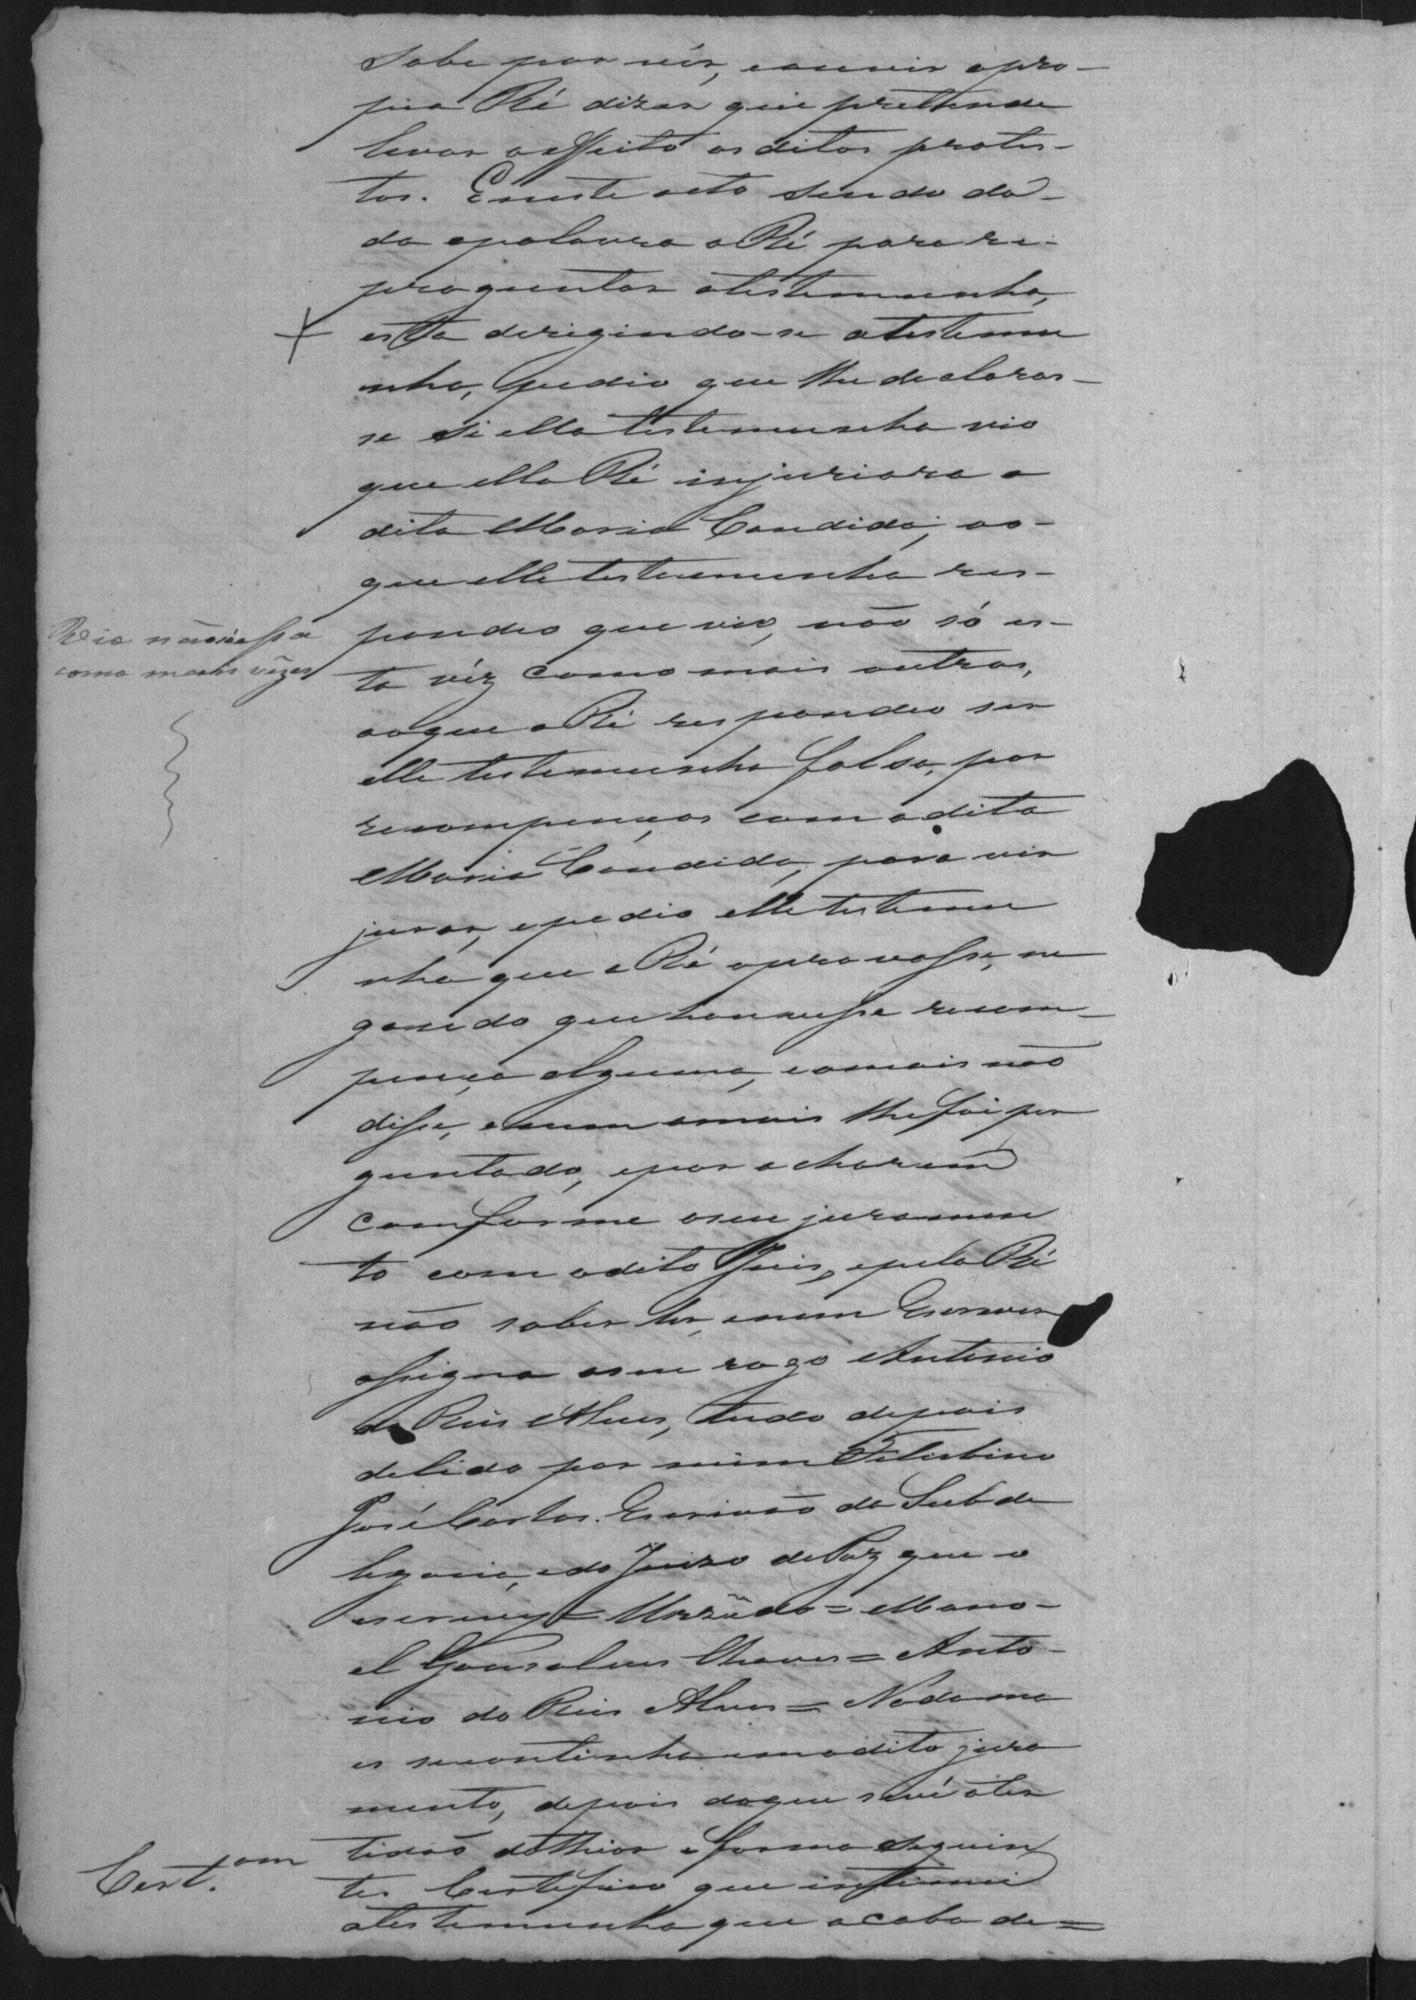 sabe por vêr, eouvir apro-
pria Ré dizer que pretende
levar aeffeito osditos protes-
tos. Eneste acto sendo da-
da apalavra aRé para re-
preguntar atestemunha,
esta derigindo-se atestemu
nha, pedio que lhe declaras-
se si ella testemunha vio
que ella Ré injuriara a
dita Maria Candida, ao-
que elle testemunha res-
pondeo que vio, não só es-
ta vêz como mais outras,
aoque a Ré respondeo ser
elle testemunha falsa, por
recompenças com adita
Maria Candida, para vir
jurar, epedio elle testemu
nha que a Ré aprovasse, ne
gando que houvesse recom-
pença alguma, eomais não
disse, enem omais lhe foi per
guntado, epor acharem
comforme oseu juramen
to com odito Juis, epela Ré
não saber ler, enem Escrever
assigna aseu rogo Antonio
do Reis Alves, tudo depois
delido por mim Filisbino
José Cortes. Escrivão da Subde
legacia, edo Juizo dePaz que o
escrevy = Urzêdo = Mano-
el Gonsalves Chaves = Anto-
nio do Reis Alves = Nadama
es secontinha emodito jura
mento, depois doque sevê acer
tidão dotheor e forma seguin
te: Certifico que intimei
atestemunha que acaba de=
Vio não só essa
como mais vêzes
Cert.am